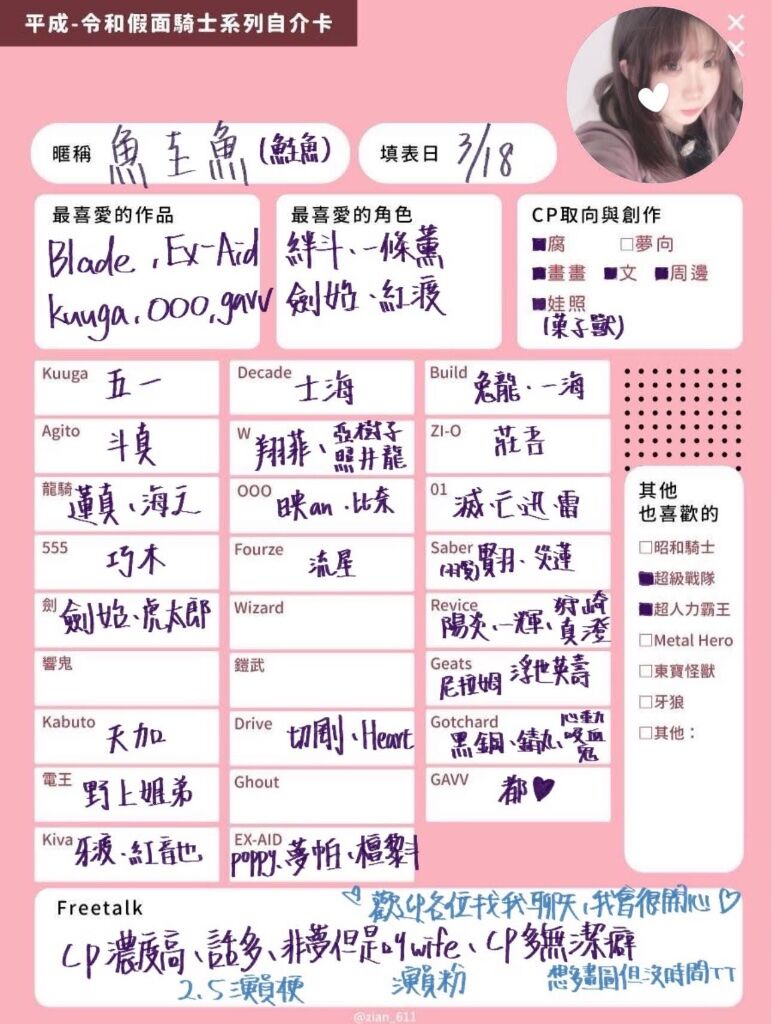 平成-令和假面騎士系列自介卡
暱稱 魚圭魚(鮭魚)
填表日 3/18
最喜愛的作品
Blade、Ex-Aid
kuuga、OOO、gavv
最喜愛的角色
絆斗、一條薫
劍始、紅渡
CP取向與創作
■腐 □夢向
■畫畫 ■文 ■周邊
■娃照
(菓子獸)
Kuuga 五一
Decade 士海
Build 兔龍、一海
Agito 斗真
W 翔菲、亞樹子
照井龍
ZI-O 莊吾
龍騎 蓮真、海之
OOO 映an、比奈
01 滅、亡迅雷
555 巧木
Fourze 流星
Saber 賢羽、燹蓮
劍 劍始、虎太郎
Wizard
Revice 陽炎、一輝、狩崎
真澄
響鬼
鎧武
Geats 尼拉姆 浮世英壽
Kabuto 天加
Drive 切剛、Heart
Gotchard 黑鋼、鏽丸、心動
吸血鬼
電王 野上姐弟
Ghout
GAVV 都♥
Kiva 牙渡、紅音也
EX-AID poppy、夢帕、檀黎斗
其他
也喜歡的
□昭和騎士
■超級戰隊
■超人力霸王
□Metal Hero
□東寶怪獸
□牙狼
□其他：
Freetalk
♡歡迎各位找我聊天，我會很開心♡
CP濃度高、話多、非夢但是叫wife、CP多無潔癖
2.5瀨梗 瀨粉 想多畫圖但沒時間TT
@zian_611